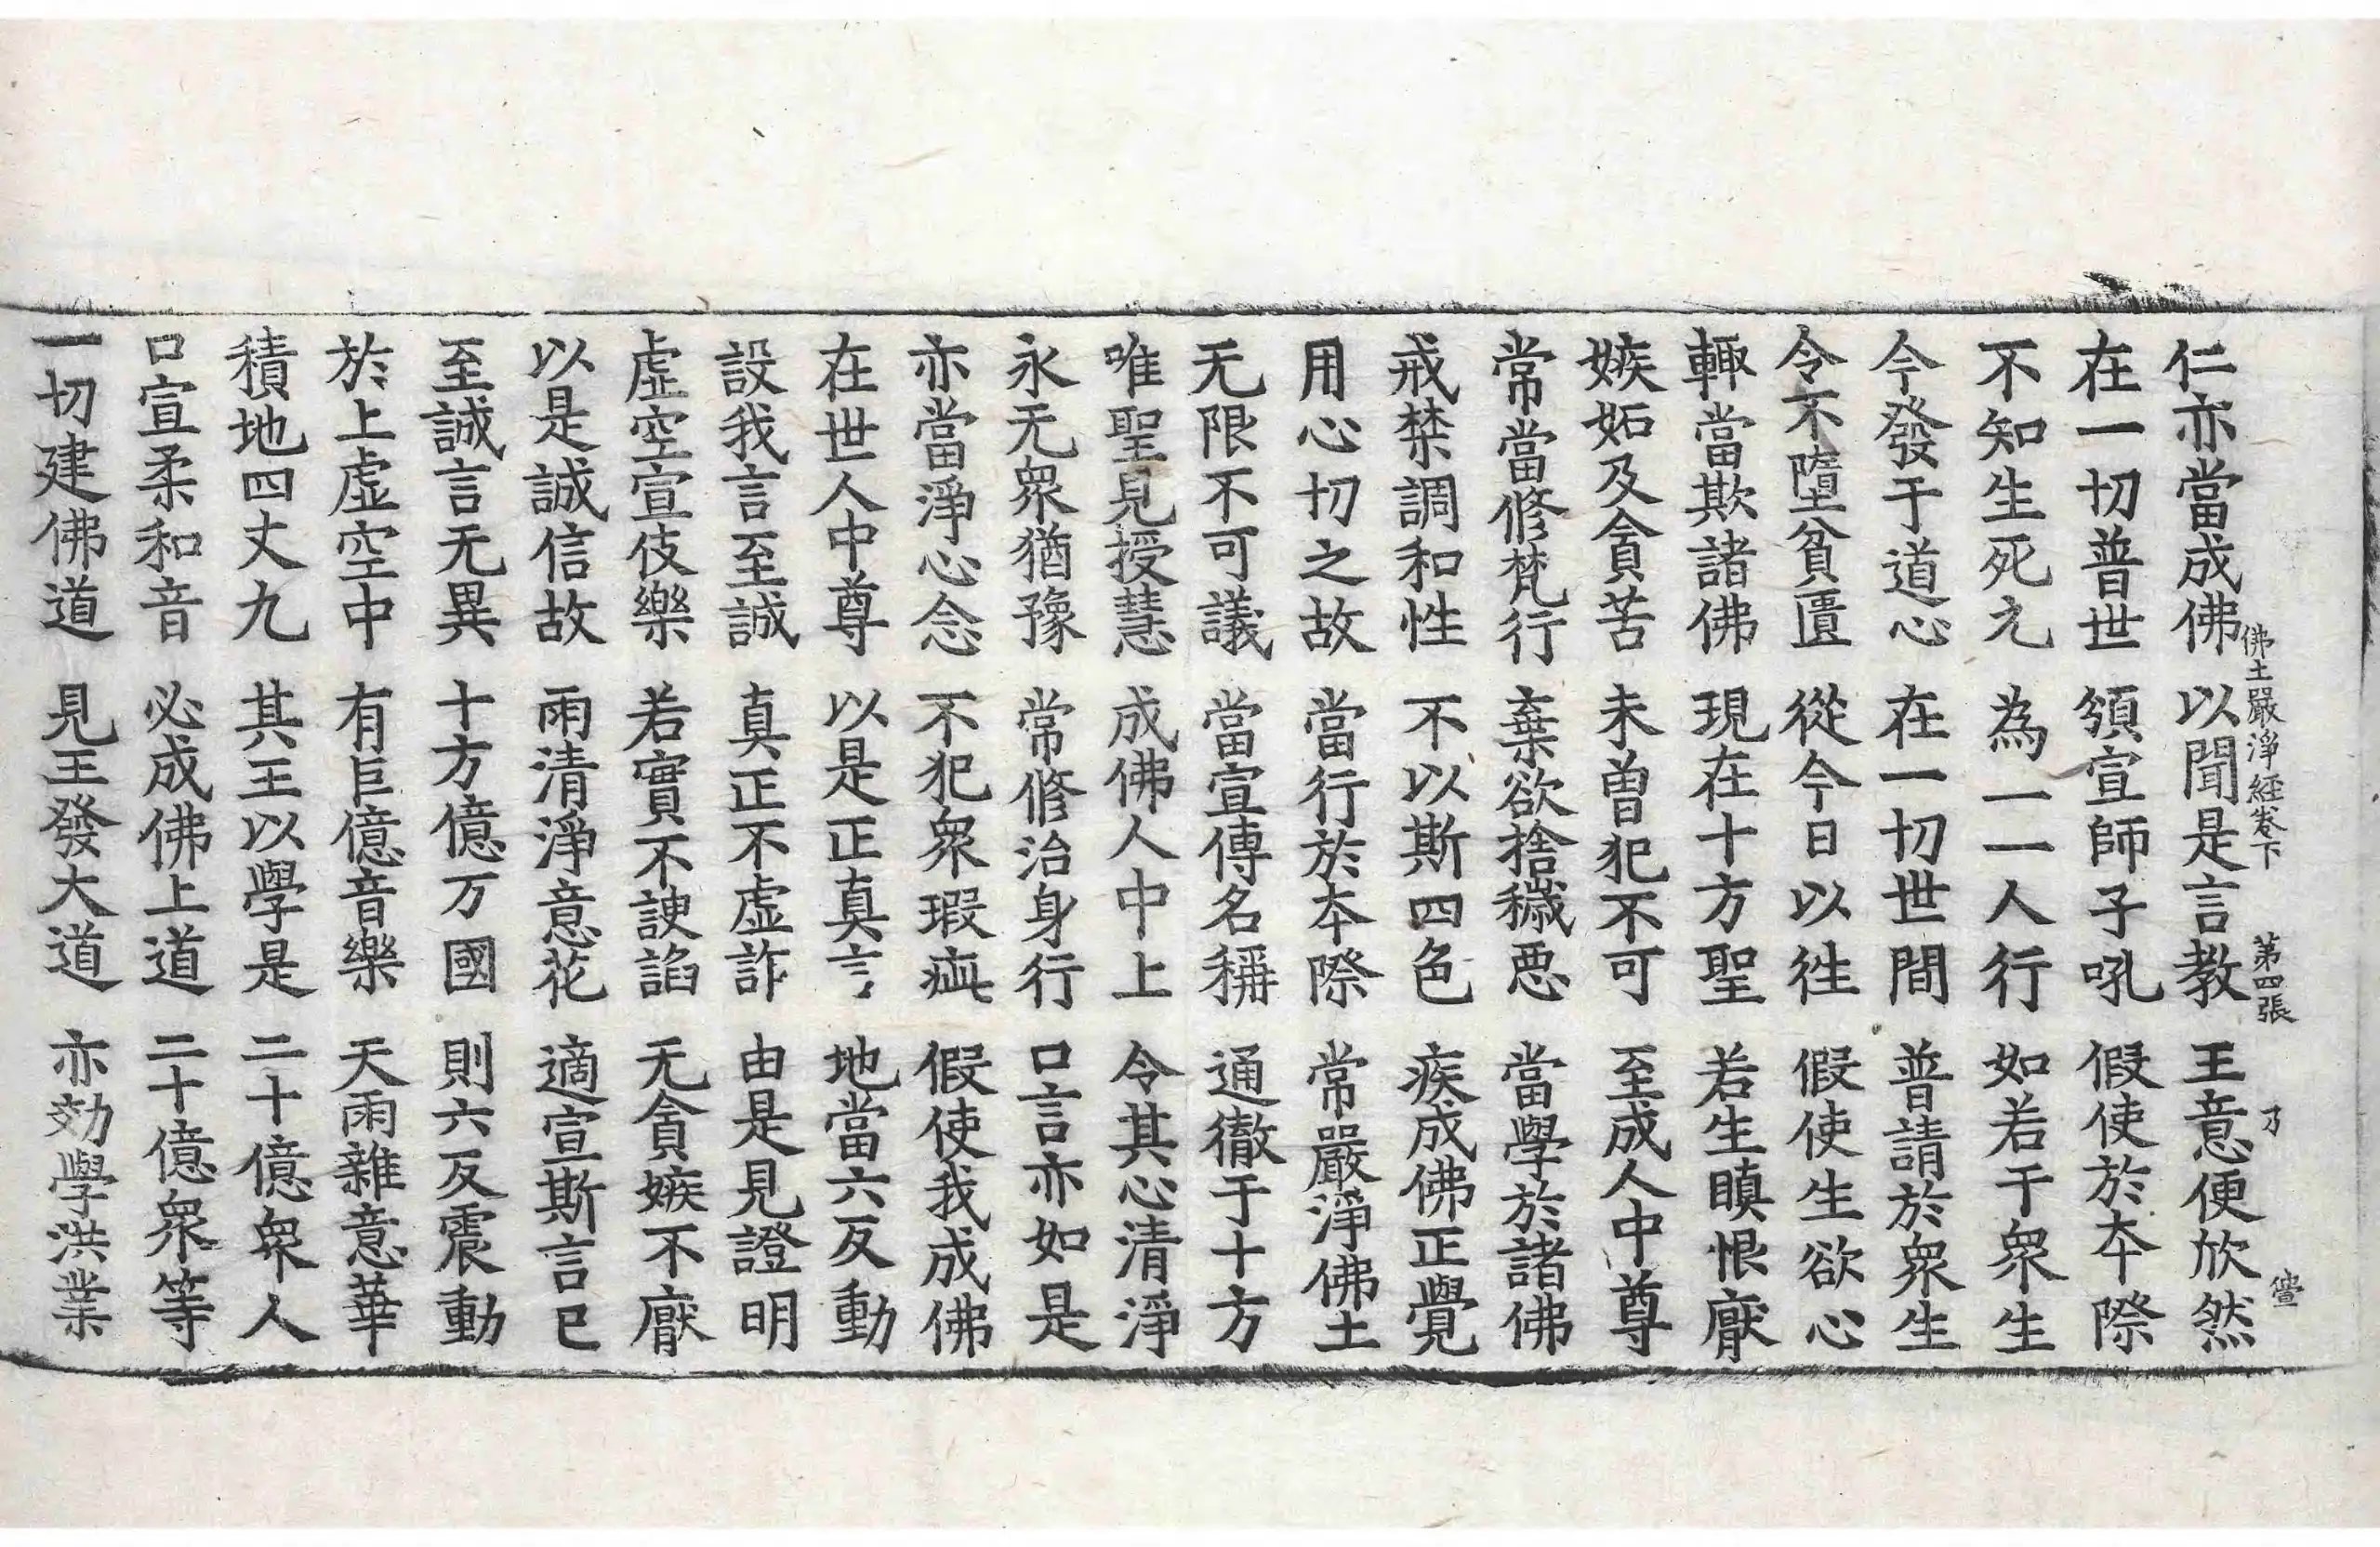 佛土嚴淨經卷下 第四張
仁亦當成佛 以聞是言教 王意便欣然
在一切普世 頒宣師子吼 假使於本際
不知生死元 為一一人行 如若干眾生
今發于道心 在一切世間 普請於眾生
令不墮貧匱 從今日以往 假使生欲心
輙當欺諸佛 現在十方聖 若生瞋恨厭
嫉妬及貪苦 未曾犯不可 至成人中尊
常當修梵行 棄欲捨穢惡 當學於諸佛
戒禁調和性 不以斯四色 疾成佛正覺
用心切之故 當行於本際 常嚴淨佛土
无限不可議 當宣傳名稱 通徹于十方
唯聖見授慧 成佛人中上 令其心清淨
永无眾猶豫 常修治身行 口言亦如是
亦當淨心念 不犯眾瑕疵 假使我成佛
在世人中尊 以是正真言 地當六反動
設我言至誠 真正不虛詐 由是見證明
虛空宣伎樂 若實不諛諂 无貪嫉不厭
以是誠信故 雨清淨意花 適宣斯言已
至誠言无異 十方億万國 則六反震動
於上虛空中 有巨億音樂 天雨雜意華
積地四丈九 其王以學是 二十億眾人
口宣柔和音 必成佛上道 二十億眾等
一切建佛道 見王發大道 亦効學洪業